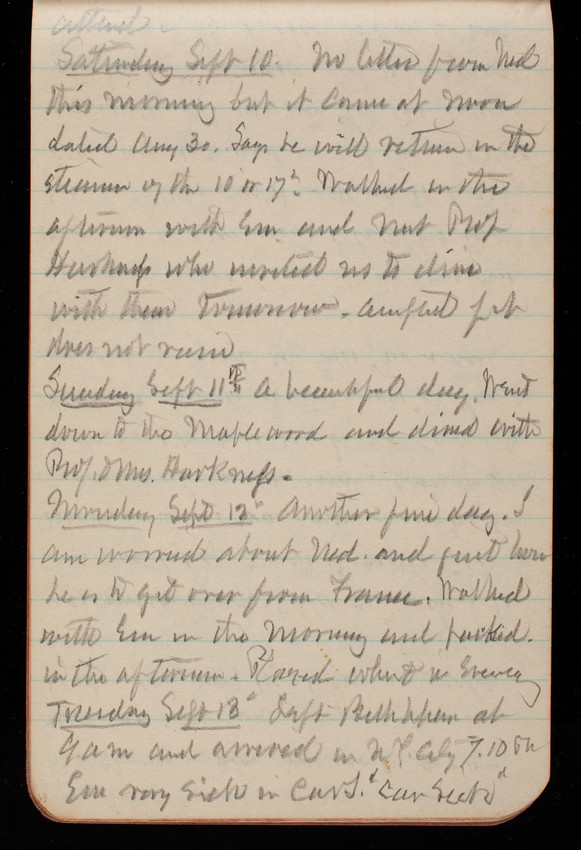 attend.
Saturday Sept 10. No letter from Ned
this morning but it came at noon
dated Aug 30. Says he will return in the
steamer of the 10 or 17th. Walked in the
afternoon with Em and met Prof
Harkness who invited us to dine
with them tomorrow. accepted if it
does not rain
Sunday Sept 11th A beautiful day. Went
down to the Maplewood and dined with
Prof. & Mrs. Harkness.
Monday Sept 12" Another fine day. I
am worried about Ned. and just how
he is to get over from France. Walked
with Em in the morning and packed.
in the afternoon. Played whist in Evening
Tuesday Sept 13" Left Bethlehem at
9 am and arrived in N.Y. City 7.10 PM
Em very sick in Cars. "Car Sick"